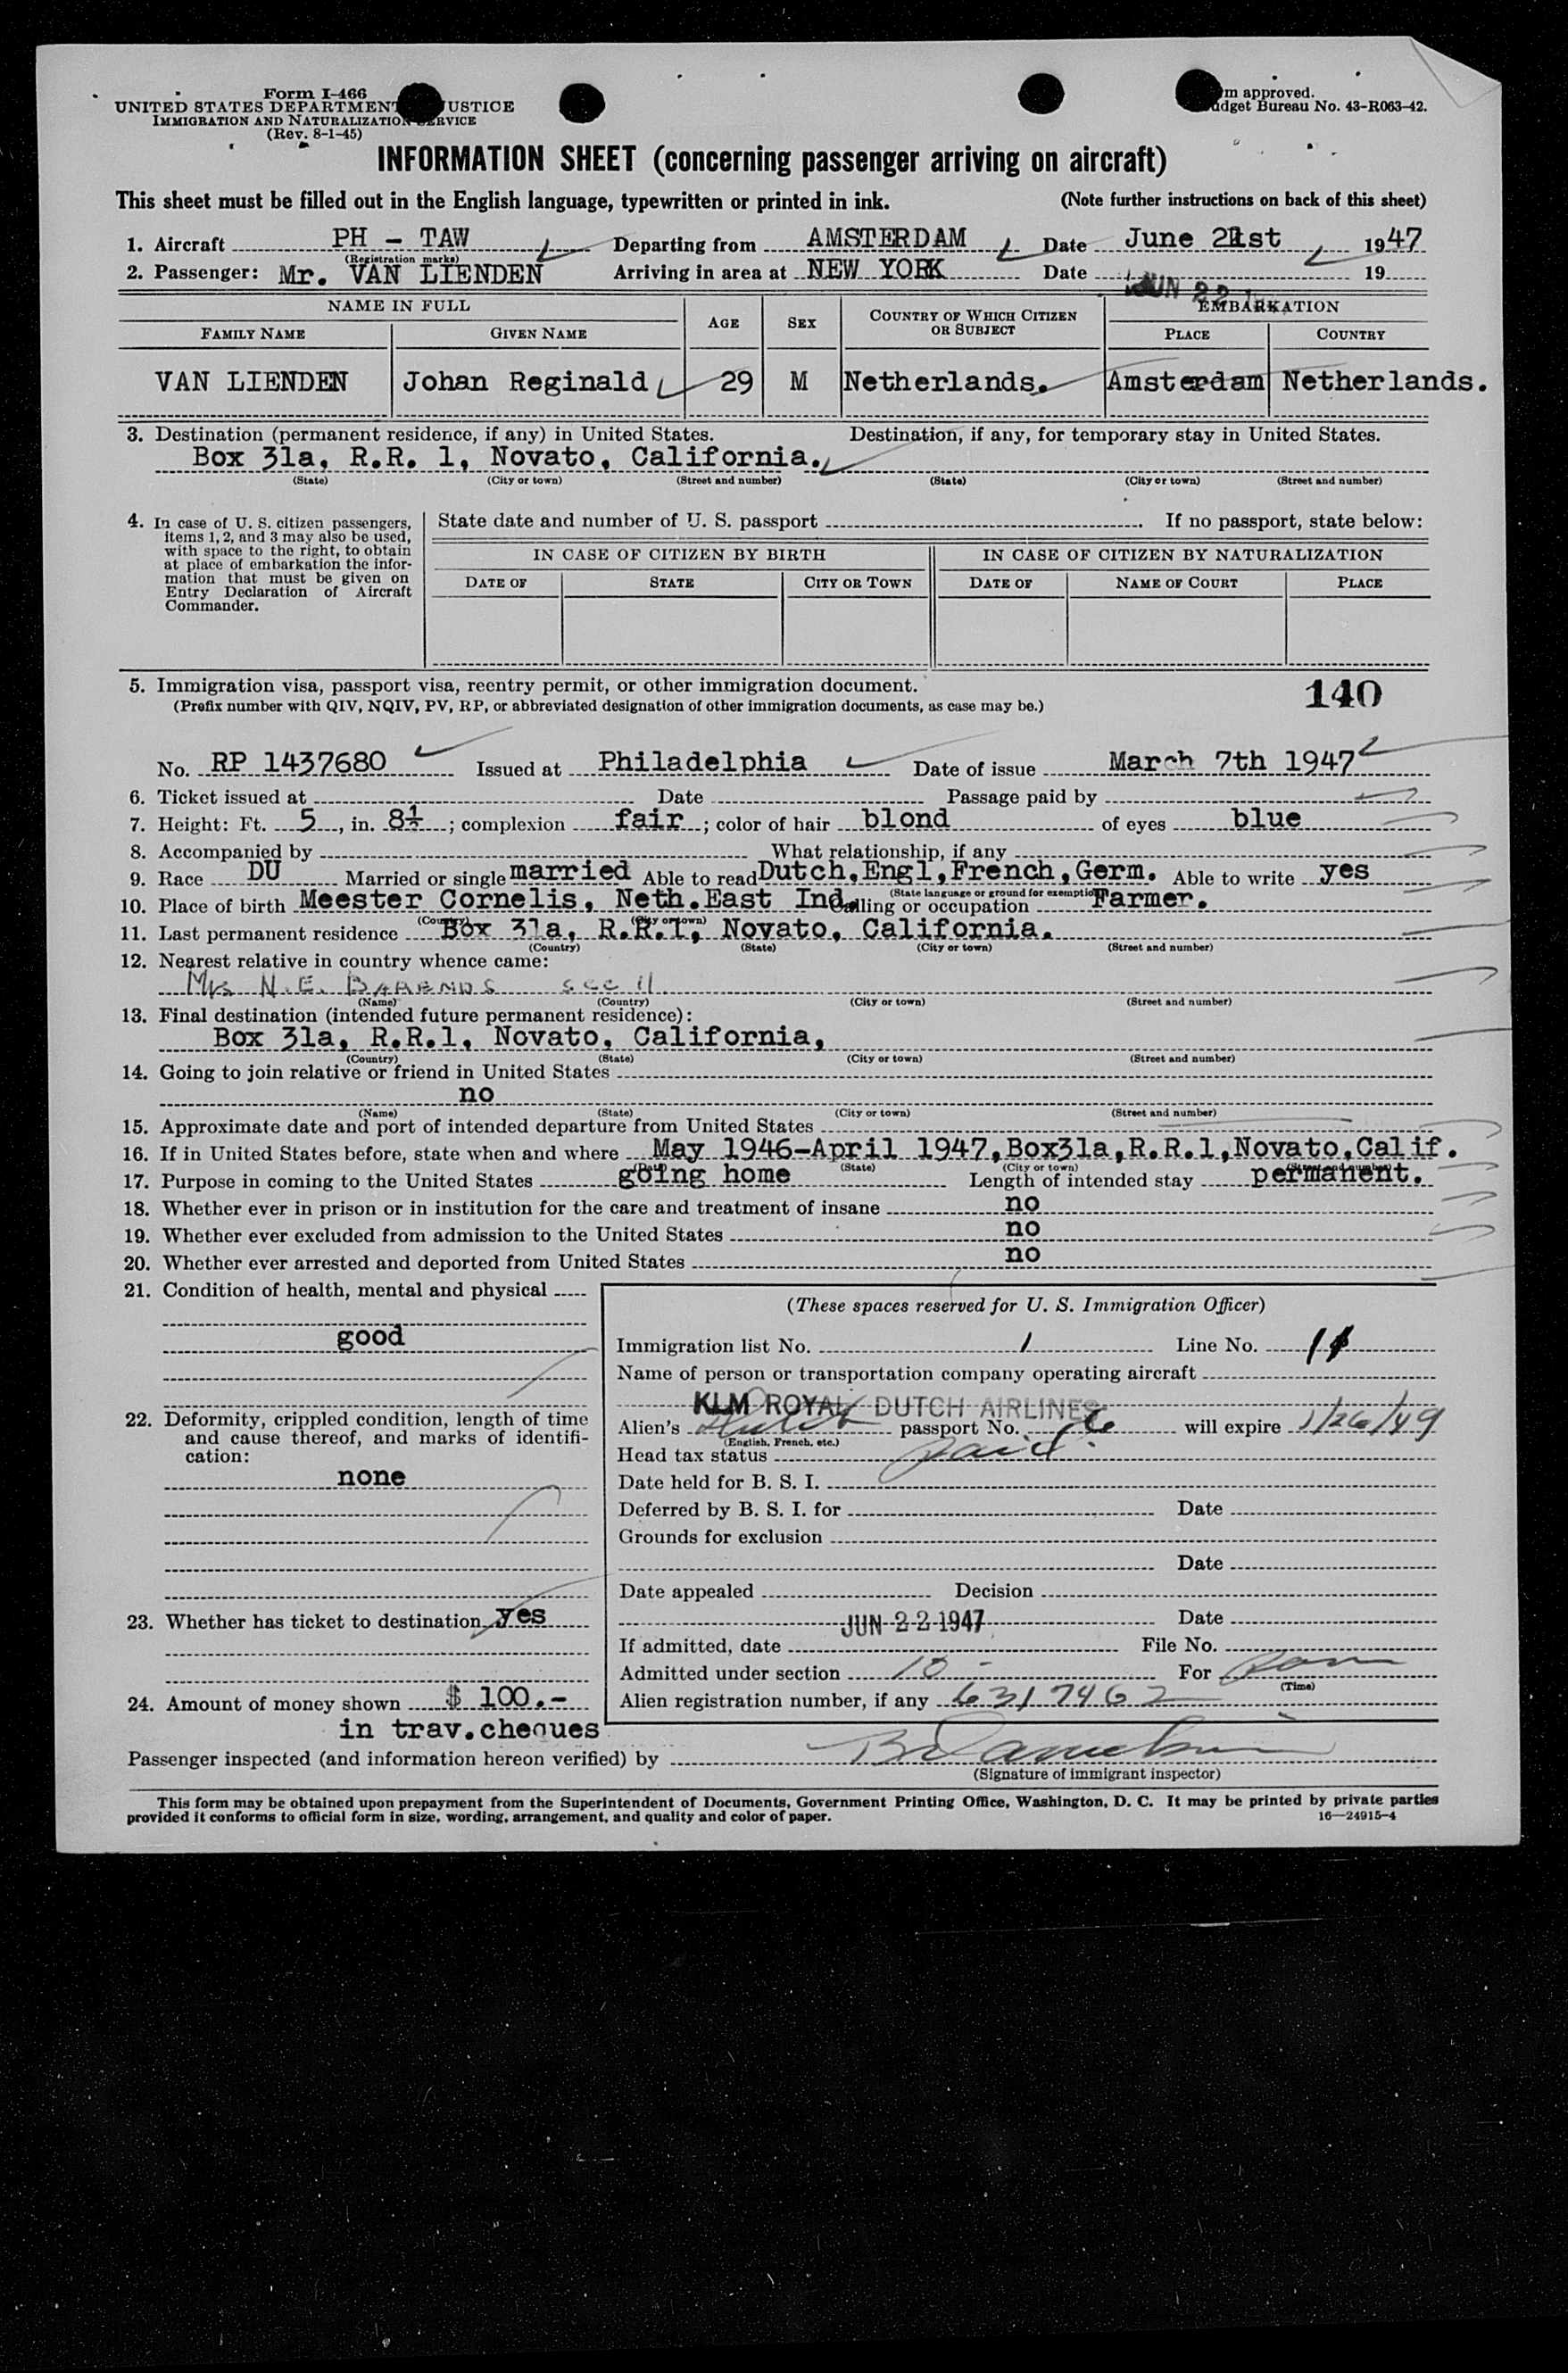 Form I-466
UNITED STATES DEPARTMENT USTICE
IMMIGRATION AND NATURALIZATION SERVICE
(Rev. 8-1-45)
m approved.
udget Bureau No. 43-R063-42.
INFORMATION SHEET (concerning passenger arriving on aircraft)
This sheet must be filled out in the English language, typewritten or printed in ink. (Note further instructions on back of this sheet)
1. Aircraft PH - TAW Departing from AMSTERDAM Date June 21st 1947
(Registration marks)
2. Passenger: Mr. VAN LIENDEN Arriving in area at NEW YORK Date JUN 22 19
NAME IN FULL AGE SEX COUNTRY OF WHICH CITIZEN OR SUBJECT EMBARKATION
FAMILY NAME GIVEN NAME PLACE COUNTRY
VAN LIENDEN Johan Reginald 29 M Netherlands. Amsterdam Netherlands.
3. Destination (permanent residence, if any) in United States. Destination, if any, for temporary stay in United States.
Box 31a, R.R. 1, Novato, California.
(State) (City or town) (Street and number) (State) (City or town) (Street and number)
4. In case of U. S. citizen passengers, items 1, 2, and 3 may also be used, with space to the right, to obtain at place of embarkation the information that must be given on Entry Declaration of Aircraft Commander.
State date and number of U. S. passport . If no passport, state below:
IN CASE OF CITIZEN BY BIRTH IN CASE OF CITIZEN BY NATURALIZATION
DATE OF STATE CITY OR TOWN DATE OF NAME OF COURT PLACE
5. Immigration visa, passport visa, reentry permit, or other immigration document. 140
(Prefix number with QIV, NQIV, PV, RP, or abbreviated designation of other immigration documents, as case may be.)
No. RP 1437680 Issued at Philadelphia Date of issue March 7th 1947
6. Ticket issued at Date Passage paid by
7. Height: Ft. 5, in. 8½; complexion fair; color of hair blond of eyes blue
8. Accompanied by What relationship, if any
9. Race DU Married or single married Able to read Dutch,Engl,French,Germ. Able to write yes
(State language or ground for exemption)
10. Place of birth Meester Cornelis, Neth.East Ind. Calling or occupation Farmer.
(Country) (City or town)
11. Last permanent residence Box 31a, R.R.1, Novato, California.
(Country) (State) (City or town) (Street and number)
12. Nearest relative in country whence came:
Mrs N.E. BARENDS see 11
(Name) (Country) (City or town) (Street and number)
13. Final destination (intended future permanent residence):
Box 31a, R.R.1, Novato, California,
(Country) (State) (City or town) (Street and number)
14. Going to join relative or friend in United States
no
(Name) (State) (City or town) (Street and number)
15. Approximate date and port of intended departure from United States
16. If in United States before, state when and where May 1946-April 1947,Box31a,R.R.1,Novato,Calif.
(Date) (State) (City or town) (Street and number)
17. Purpose in coming to the United States going home Length of intended stay permanent.
18. Whether ever in prison or in institution for the care and treatment of insane no
19. Whether ever excluded from admission to the United States no
20. Whether ever arrested and deported from United States no
21. Condition of health, mental and physical
good
22. Deformity, crippled condition, length of time and cause thereof, and marks of identification:
none
23. Whether has ticket to destination yes
24. Amount of money shown $ 100.-
in trav.cheques
(These spaces reserved for U. S. Immigration Officer)
Immigration list No. 1 Line No. 11
Name of person or transportation company operating aircraft
KLM ROYAL DUTCH AIRLINES
Alien's Dutch passport No. will expire 1/26/49
(English, French, etc.)
Head tax status paid
Date held for B. S. I.
Deferred by B. S. I. for Date
Grounds for exclusion
Date
Date appealed Decision
JUN 22 1947 Date
If admitted, date File No.
Admitted under section 10 - For
(Time)
Alien registration number, if any 6317462
Passenger inspected (and information hereon verified) by
(Signature of immigrant inspector)
This form may be obtained upon prepayment from the Superintendent of Documents, Government Printing Office, Washington, D. C. It may be printed by private parties
provided it conforms to official form in size, wording, arrangement, and quality and color of paper. 16—24915-4